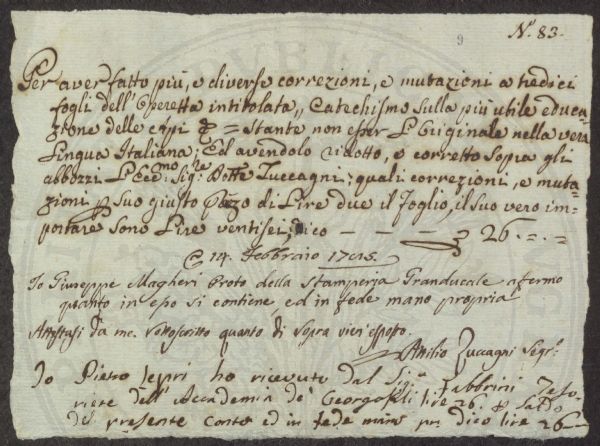 9
N.° 83.
Per aver fatto più, e diverse correzioni, e mutazioni a tredici
fogli dell'Operetta intitolata,, Catechismo sulla più utile educa-
zione delle Api = Stante non esser L'Originale nella vera
Lingua Italiana: Ed avendolo ridotto, e corretto sopra gli
abbozzi L'Ecc.mo Sig.re Dott.e Zuccagni; quali correzioni, e muta-
zioni p suo giusto pzzo di Lire due il Foglio, il suo vero im-
portare sono Lire ventisei, dico — — — 26 - - -
14. Febbraio
Io Giuseppe Magheri Proto della Stamperia Granducale afermo
quanto in esso si contiene, ed in fede mano propria
Attestasi da me sottoscritto quanto di sopra vien' esposto.
Attilio Zuccagni Segr.
Io Pietro Lepri ho ricevuto dal Sig.r Fabbrini Teso-
riere dell'Accademia de' Georgofili lire 26. p saldo
del presente conto ed in fede mano pa dico lire 26—